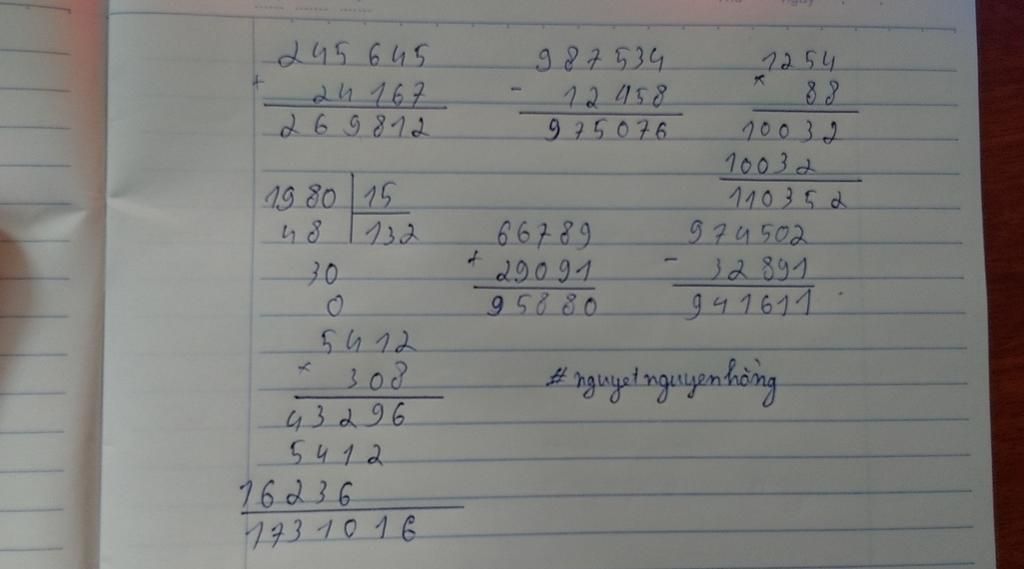 245 645
+ 24 167
269 812
987 534
- 12 458
975076
1254
× 88
10032
10032
110352
1980 | 15
48 | 132
30
0
66789
+ 29091
95880
974502
- 32891
941611
5412
× 308
43296
5412
16236
1731016
# nguyetnguyenhồng